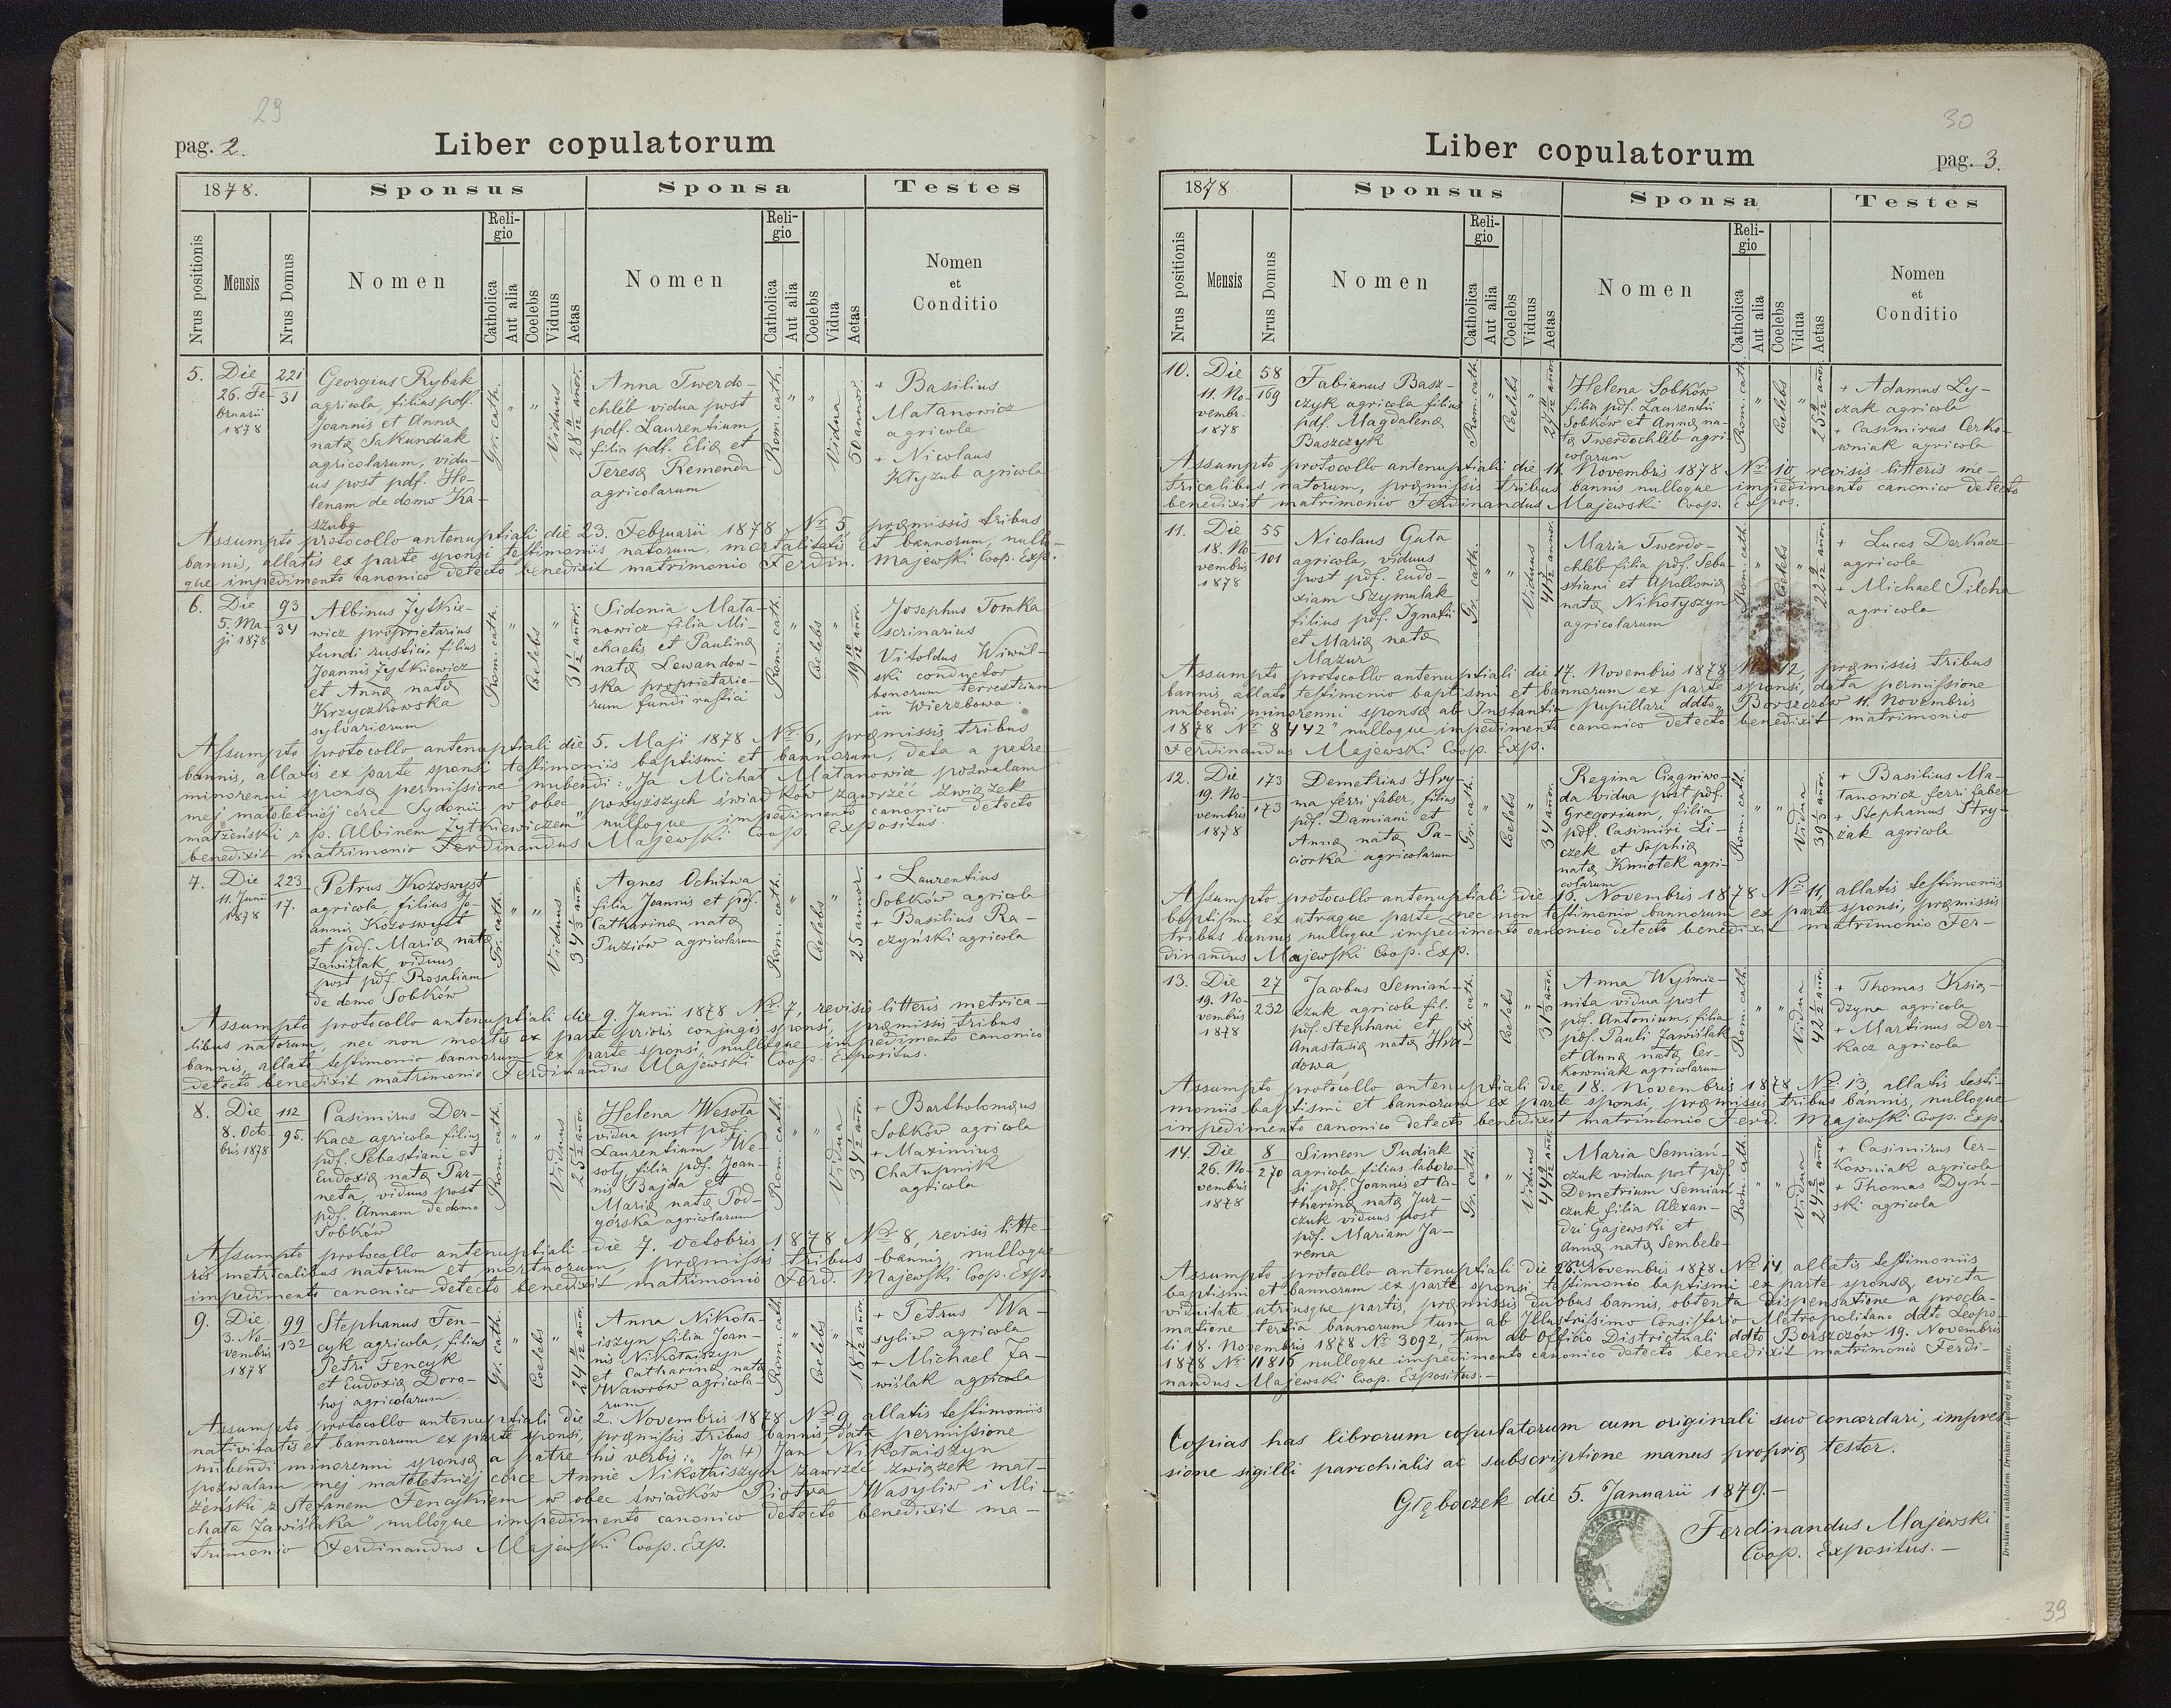 29
pag. 2.
Liber copulatorum
1878.
Sponsus
Sponsa
Testes
Nrus positionis
Mensis
Nrus Domus
Nomen
Religio
Catholica
Aut alia
Coelebs
Viduus
Aetas
Nomen
Religio
Catholica
Aut alia
Coelebs
Vidua
Aetas
Nomen
et
Conditio
5.
Die
26. Fe-
bruarii
1878
221
31
Georgius Rybak
agricola, filius pdf.
Joannis et Annæ
natæ Sakundiak
agricolarum, vidu-
us post pdf. He-
lenam de domo Ka-
szuba
Gr. cath.
" "
Viduus
28 11/12 annor.
Anna Twerdo-
chléb vidua post
pdf. Laurentium,
filia pdf. Eliæ et
Teresæ Remenda
agricolarum
Rom. cath.
" "
Vidua
50 annor.
+ Basilius
Matanowicz
agricola
+ Nicolaus
Kłyzub agricola
Assumpto protocollo antenuptiali die 23. Februarii 1878 Nr. 5, præmissis tribus
bannis, allatis ex parte sponsi testimoniis natorum, mortalitatis et bannorum, nullo-
que impedimento canonico detecto benedixit matrimonio Ferdin. Majewski Coop. Exp.
6.
Die
5. Ma-
ji 1878
93
34
Albinus Żytkie-
wicz proprietarius
fundi rustici, filius
Joannis Żytkiewicz
et Annæ natæ
Krzyczkowska
sylvariorum
Rom. cath.
"
Coelebs
"
31 1/2 annor.
Sidonia Mata-
nowicz filia Mi-
chaelis et Paulinæ
natæ Lewandow-
ska proprietario-
rum fundi rustici
Rom. cath.
"
Coelebs
"
19 10/12 annor.
Josephus Tomka
scrinarius
Vitoldus Wiwul-
ski conductor
bonorum terrestrium
in Wierzbowa.
Assumpto protocollo antenuptiali die 5. Maji 1878 Nr. 6, præmissis tribus
bannis, allatis ex parte sponsi testimoniis baptismi et bannorum, data a patre
minorenni sponsæ permissione nubendi: „Ja Michał Matanowicz pozwalam
mej małoletniéj córce Sydonii w obec powyższych świadków zawrzéć związek
małżeński z p. Albinem Żytkiewiczem" nulloque impedimento canonico detecto
benedixit matrimonio Ferdinandus Majewski Coop. Expositus.
7.
Die
11. Junii
1878
223
17.
Petrus Kozoswyst
agricola, filius Jo-
annis Kozoswyst
et pdf. Mariæ natæ
Zawiślak viduus
post pdf. Rosaliam
de domo Sobków
Gr. cath.
" "
Viduus
34 1/3 annor.
Agnes Ochitwa
filia Joannis et pdf.
Catharinæ natæ
Puziów agricolarum
Rom. cath.
"
Coelebs
"
25 annor.
+ Laurentius
Sobków agricola
+ Basilius Ra-
czyński agricola
Assumpto protocollo antenuptiali die 9. Junii 1878 Nr. 7, revisis litteris metrica-
libus natorum, nec non mortis ex parte prioris conjugis sponsi, præmissis tribus
bannis, allato testimonio bannorum ex parte sponsi, nulloque impedimento canonico
detecto benedixit matrimonio Ferdinandus Majewski Coop. Expositus.
8.
Die
8. Octo-
bris 1878
112
95.
Casimirus Der-
kacz agricola filius
pdf. Sebastiani et
Eudoxiæ natæ Par-
neta, viduus post
pdf. Annam de domo
Sobków
Rom. cath.
" "
Viduus
25 1/2 annor.
Helena Wesoła
vidua post pdf.
Laurentium We-
soły, filia pdf. Joan-
nis Bajda et
Mariæ natæ Pod-
górska agricolarum
Rom. cath.
" "
Vidua
34 1/2 annor.
+ Bartholomæus
Sobków agricola
+ Maximus
Chałupnik
agricola
Assumpto protocollo antenuptiali die 7. Octobris 1878 Nr. 8, revisis litte-
ris metricalibus natorum et mortuorum, præmissis tribus bannis, nulloque
impedimento canonico detecto benedixit matrimonio Ferd. Majewski Coop. Exp.
9.
Die
3. No-
vembris
1878
99
132
Stephanus Fen-
cyk agricola, filius
Petri Fencyk
et Eudoxiæ Doro-
hoj agricolarum
Gr. cath.
"
Coelebs
"
24 11/12 annor.
Anna Nikoła-
iszyn filia Joan-
nis Nikołaiszyn
et Catharinæ natæ
Wawrów agricola-
rum
Rom. cath.
"
Coelebs
"
18 7/12 annor.
+ Petrus Wa-
syliw agricola
+ Michael Za-
wiślak agricola
Assumpto protocollo antenuptiali die 2. Novembris 1878 Nr. 9, allatis testimoniis
nativitatis et bannorum ex parte sponsi, præmissis tribus bannis, data permissione
nubendi minorenni sponsæ a patre his verbis: „Ja (+) Jan Nikołaiszyn
pozwalam mej małoletniéj córce Annie Nikołaiszyn zawrzéć związek mał-
żeński z Stefanem Fencykiem w obec świadków Piotra Wasyliw i Mi-
chała Zawiślaka" nulloque impedimento canonico detecto benedixit ma-
trimonio Ferdinandus Majewski Coop. Exp.
30
Liber copulatorum
pag. 3.
1878
Sponsus
Sponsa
Testes
Nrus positionis
Mensis
Nrus Domus
Nomen
Religio
Catholica
Aut alia
Coelebs
Viduus
Aetas
Nomen
Religio
Catholica
Aut alia
Coelebs
Vidua
Aetas
Nomen
et
Conditio
10.
Die
11. No-
vembr.
1878
58
169
Fabianus Basz-
czyk agricola filius
pdf. Magdalenæ
Baszczyk
Rom. cath.
"
Coelebs
"
27 10/12 annor.
Helena Sobków
filia pdf. Laurentii
Sobków et Annæ na-
tæ Twerdochléb agri-
colarum
Rom. cath.
"
Coelebs
"
25 9/12 annor.
+ Adamus Ły-
czak agricola
+ Casimirus Cerko-
wniak agricola
Assumpto protocollo antenuptiali die 11. Novembris 1878 Nr. 10 revisis litteris me-
tricalibus natorum, præmissis tribus bannis nulloque impedimento canonico detecto
benedixit matrimonio Ferdinandus Majewski Coop. Expos.
11.
Die
18. No-
vembris
1878
55
101
Nicolaus Guła
agricola, viduus
post pdf. Eudo-
xiam Szymulak
filius pdf. Ignatii
et Mariæ natæ
Mazur
Gr. cath.
" "
Viduus
41 5/12 annor.
Maria Twerdo-
chléb filia pdf. Seba-
stiani et Apolloniæ
natæ Nikołyszyn
agricolarum
Rom. cath.
"
Coelebs
"
22 9/12 annor.
+ Lucas Derkacz
agricola
+ Michael Pilcha
agricola
Assumpto protocollo antenuptiali die 17. Novembris 1878 Nr. 12, præmissis tribus
bannis, allato testimonio baptismi et bannorum ex parte sponsi, data permissione
nubendi minorenni sponsæ ab Instantia pupillari ddto „Borszczów 11. Novembris
1878 Nr. 8442" nulloque impedimento canonico detecto benedixit matrimonio
Ferdinandus Majewski Coop. Exp.
12.
Die
19. No-
vembris
1878
173
173
Demetrius Hry-
ma ferri faber, filius
pdf. Damiani et
Annæ natæ Pa-
ciorka agricolarum
Gr. cath.
"
Coelebs
"
34 annor.
Regina Ciągniwo-
da vidua post pdf.
Gregorium, filia
pdf. Casimiri Li-
czek et Sophiæ
natæ Kmiotek agri-
colarum
Rom. cath.
" "
Vidua
39 1/2 annor.
+ Basilius Ma-
tanowicz ferri faber
+ Stephanus Stry-
żak agricola
Assumpto protocollo antenuptiali die 16. Novembris 1878 Nr. 11, allatis testimoniis
baptismi ex utraque parte nec non testimonio bannorum ex parte sponsi, præmissis
tribus bannis nulloque impedimento canonico detecto benedixit matrimonio Fer-
dinandus Majewski Coop. Exp.
13.
Die
19. No-
vembris
1878
27
232
Jacobus Semiań-
czuk agricola fil.
pdf. Stephani et
Anastasiæ natæ Hra-
dowa
Gr. cath.
"
Coelebs
"
31 1/3 annor.
Anna Wyśmie-
nita vidua post
pdf. Antonium, filia
pdf. Pauli Zawiślak
et Annæ natæ Cer-
kowniak agricolarum
Rom. cath.
" "
Vidua
42 1/2 annor.
+ Thomas Księ-
dzyna agricola
+ Martinus Der-
kacz agricola
Assumpto protocollo antenuptiali die 18. Novembris 1878 Nr. 13, allatis testi-
moniis baptismi et bannorum ex parte sponsi, præmissis tribus bannis, nulloque
impedimento canonico detecto benedixit matrimonio Ferd. Majewski Coop. Exp.
14.
Die
26. No-
vembris
1878
8
270
Simeon Pudiak
agricola filius laborio-
si pdf. Joannis et Ca-
tharinæ natæ Jur-
czuk viduus post
pdf. Mariam Ja-
rema
Gr. cath.
" "
Viduus
44 9/12 annor.
Maria Semiań-
czuk vidua post pdf.
Demetrium Semiań-
czuk filia Alexan-
dri Gajewski et
Annæ natæ Sembele-
Rom. cath.
" "
Vidua
24 2/12 annor.
+ Casimirus Cer-
kowniak agricola
+ Thomas Dyń-
ski agricola
Assumpto protocallo antenuptiali die Novembris 1878 Nr. 14, allatis testimoniis
baptismi et bannorum ex parte sponsi testimonio baptismi ex parte sponsæ, evicta
viduitate utriusque partis, præmissis duobus bannis, obtenta dispensatione a procla-
matione tertia bannorum tum ab Illustrissimo Consistorio Metropolitano ddto Leopo-
li 18. Novembris 1878 Nr. 3092, tum ab Officio Districtuali ddto Borszczów 19. Novembris
1878 Nr. 11816 nulloque impedimento canonico detecto benedixit matrimonio Ferdi-
nandus Majewski Coop. Expositus.—
Copias has librorum copulatorum cum originali suo concordari, impres-
sione sigilli parochialis ac subscriptione manus propriæ testor.
Głęboczek die 5. Januarii 1879.—
Ferdinandus Majewski
Coop. Expositus.—
Drukiem i nakładem Drukarni Ludowej we Lwowie.
39